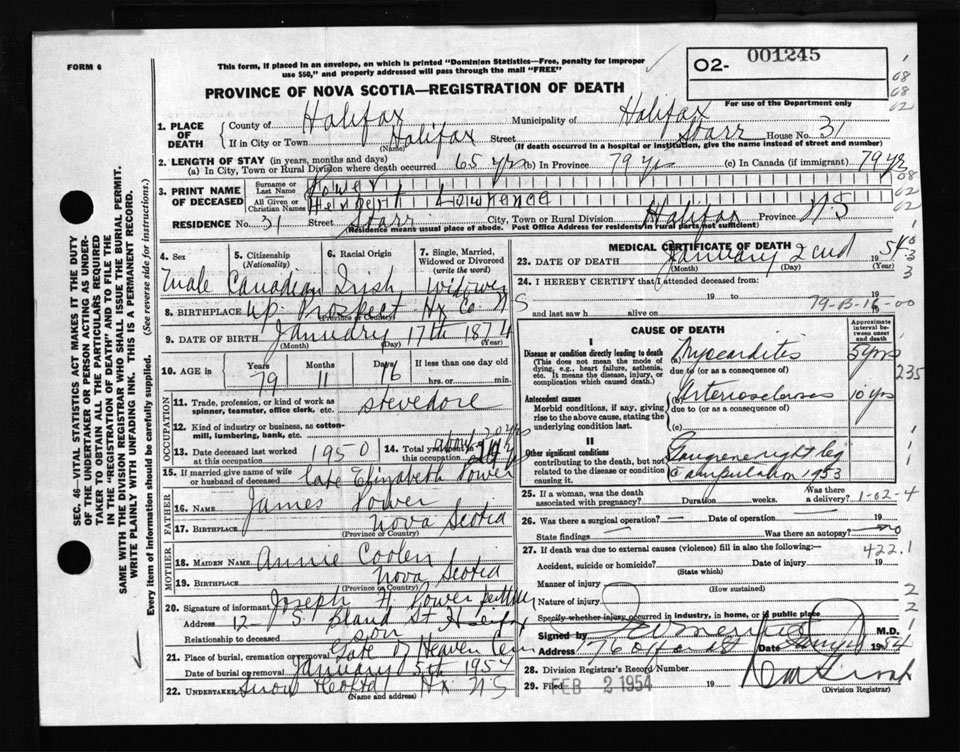 FORM 6
This form, if placed in an envelope, on which is printed "Dominion Statistics—Free, penalty for improper
use $50," and properly addressed will pass through the mail "FREE"
O2- 001245
PROVINCE OF NOVA SCOTIA—REGISTRATION OF DEATH
For use of the Department only
08
08
02
1. PLACE OF DEATH
County of Halifax Municipality of Halifax
If in City or Town Halifax Street Starr House No. 31
(Name) (If death occurred in a hospital or institution, give the name instead of street and number)
2. LENGTH OF STAY (in years, months and days)
(a) In City, Town or Rural Division where death occurred 65 yrs (b) In Province 79 yrs (c) In Canada (if immigrant) 79 yrs
3. PRINT NAME OF DECEASED
Surname or Last Name Power
All Given or Christian Names Herbert Lawrence
08
02
02
RESIDENCE No. 31 Street Starr City, Town or Rural Division Halifax Province NS
(Residence means usual place of abode. Post Office Address for residents in rural parts not sufficient)
4. Sex
Male
5. Citizenship (Nationality)
Canadian
6. Racial Origin
Irish
7. Single, Married, Widowed or Divorced (write the word)
Widower
8. BIRTHPLACE Up. Prospect Hx Co NS
(Province or Country)
9. DATE OF BIRTH January 17th 1874
(Month) (Day) (Year)
10. AGE in Years 79 Months 11 Days 16 If less than one day old
hrs. or min.
OCCUPATION
11. Trade, profession or kind of work as
spinner, teamster, office clerk, etc. stevedore
12. Kind of industry or business, as cotton-
mill, lumbering, bank, etc.
13. Date deceased last worked at this occupation 1950
14. Total years spent in this occupation about 20 yrs
15. If married give name of wife
or husband of deceased late Elizabeth Power
FATHER
16. NAME James Power
17. BIRTHPLACE Nova Scotia
(Province or Country)
MOTHER
18. MAIDEN NAME Annie Coolen
19. BIRTHPLACE Nova Scotia
(Province or Country)
20. Signature of informant Joseph H Power
Address 12 St
Relationship to deceased son
21. Place of burial, cremation or removal Gate of Heaven Cem
Date of burial or removal January 5th 1954
22. UNDERTAKER Snow Hx NS
(Name and address)
MEDICAL CERTIFICATE OF DEATH
23. DATE OF DEATH January 2nd 1954
(Month) (Day) (Year)
3
3
24. I HEREBY CERTIFY that I attended deceased from:
19 to 19
and last saw h alive on
79-B-16-00
CAUSE OF DEATH
Approximate interval between onset and death
I
Disease or condition directly leading to death
(This does not mean the mode of
dying, e.g., heart failure, asthenia,
etc. It means the disease, injury, or
complication which caused death.)
Myocarditis 5 yrs
due to (or as a consequence of)
235
Antecedent causes
Morbid conditions, if any, giving
rise to the above cause, stating the
underlying condition last.
(b) Arteriosclerosis 10 yrs
due to (or as a consequence of)
(c)
II
Other significant conditions
contributing to the death, but not
related to the disease or condition
causing it.
Gangrene right leg
c amputation 1953
25. If a woman, was the death
associated with pregnancy? Duration weeks. Was there a delivery?
1-02-4
26. Was there a surgical operation? — Date of operation — 19
State findings Was there an autopsy? no
27. If death was due to external causes (violence) fill in also the following:—
422.1
Accident, suicide or homicide? Date of injury 19
(State which)
Manner of injury
(How sustained)
Nature of injury
Specify whether injury occurred in industry, in home, or in public place
2
2
Signed by M.D.
Address 176 St Date 1954
28. Division Registrar's Record Number
29. Filed FEB 2 1954 19
(Division Registrar)
SEC. 46—VITAL STATISTICS ACT MAKES IT THE DUTY
OF THE UNDERTAKER OR PERSON ACTING AS UNDER-
TAKER TO OBTAIN ALL THE PARTICULARS REQUIRED
IN THE "REGISTRATION OF DEATH" AND TO FILE THE
SAME WITH THE DIVISION REGISTRAR WHO SHALL ISSUE THE BURIAL PERMIT.
WRITE PLAINLY WITH UNFADING INK. THIS IS A PERMANENT RECORD.
Every item of information should be carefully supplied. (See reverse side for instructions.)